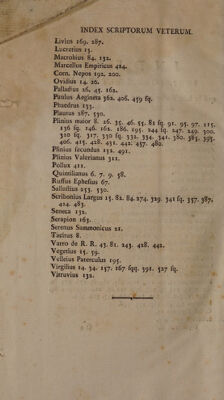 INDEX SCRIPTORUM VETERUM.
Livius 169. 287.
Lucretius 15.
Macrobius 84. 132.
Marcellus Empiricus 424.
Corn. Nepos 192. 200.
Ovidius 14. 20.
Palladius 26. 45. 162.
Paulus Aegineta 362. 406. 459 sq.
Phaedrus 133.
Plautus 287. 530.
Plinius maior 8. 26. 35. 46. 55. 81 sq. 91. 95. 97. 115.
136 sq. 146. 162. 186. 195. 244 sq. 247. 249. 300.
310 sq. 317. 330 sq. 332. 334. 341. 380. 385. 395.
406. 415. 428. 431. 442. 457. 480.
Plinius secundus 132. 491.
Plinius Valerianus 311.
Pollux 411.
Quintilianus 6. 7. 9. 58.
Ruffus Ephesius 67.
Sallustius 253. 530.
Scribonius Largus 15. 82. 84. 274. 329. 341 sq. 357. 387.
424. 483.
Seneca 132.
Serapion 163.
Serenus Sammonicus 21.
Tacitus 8.
Varro de R. R. 43. 81. 243. 428. 442.
Vegetius 15. 59.
Velleius Paterculus 195.
Virgilius 14. 34. 157. 167 sqq. 391. 527 sq.
Vitruvius 132.